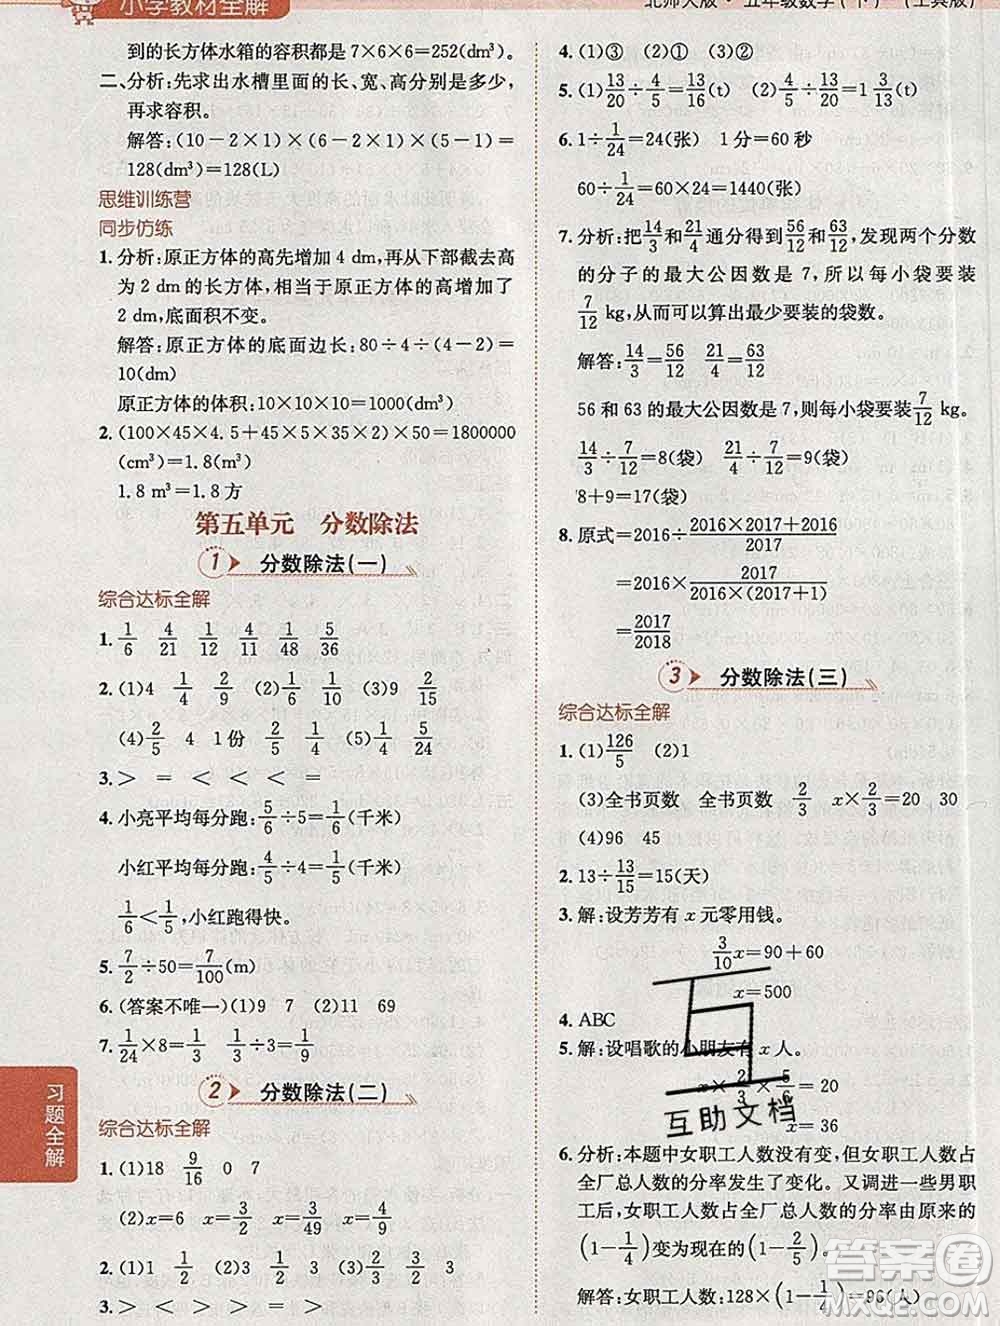 小学教材全解
北师大版·五年级数学(下) (工具版)
到的长方体水箱的容积都是 7×6×6=252(dm³)。
二、分析:先求出水槽里面的长、宽、高分别是多少,
再求容积。
解答:(10-2×1)×(6-2×1)×(5-2×1)=
128(dm³)=128(L)
思维训练营
同步仿练
1. 分析:原正方体的高先增加 4 dm,再从下部截去高
为 2 dm 的长方体,相当于原正方体的高增加了
2 dm,底面积不变。
解答:原正方体的底面边长:80÷4÷(4-2)=
10(dm)
原正方体的体积:10×10×10=1000(dm³)
2. (100×45×4.5+45×35×2)×50=1800000
(cm³)=1.8(m³)
1.8 m³=1.8 方
第五单元 分数除法
1 分数除法(一)
综合达标全解
1. 1/6 4/21 1/12 4/11 1/48 5/36
2. (1)4 1/4 2/9 (2)1/6 1/10 (3)9 2/15
(4)2/5 4 1份 2/5 1/4 (5)5/24
3. > = < < < =
4. 小亮平均每分跑:5/6÷5=1/6(千米)
小红平均每分跑:4/5÷4=1/5(千米)
1/6<1/5,小红跑得快。
5. 7/2÷50=7/100(m)
6. (答案不唯一)(1)9 7 (2)11 69
7. 1/24×8=1/3 1/3÷3=1/9
2 分数除法(二)
综合达标全解
1. (1)18 9/16 0 7
(2)x=6 x=3/2 x=3/49 x=4/3
2. (1)2 1/2 (2)1/3 3 (3)3/2 2/3 1
3. > < > > < =
4. (1)③ (2)① (3)④
5. (1)13/20÷4/5=13/16(t) (2)4/5÷13/20=1 3/13(t)
6. 1÷1/24=24(张) 1分=60秒
60÷1/24=60×24=1440(张)
7. 分析:把14/3和21/4通分得到56/12和63/12,发现两个分数
的分子的最大公因数是 7,所以每小袋要装
7/12 kg,由此可以算出最少要装的袋数。
解答:14/3=56/12 21/4=63/12
56 和 63 的最大公因数是 7,则每小袋要装7/12 kg。
14/3÷7/12=8(袋) 21/4÷7/12=9(袋)
8+9=17(袋)
8. 原式=2016÷2016×2017+2016/2017
=2016×2017/2016×(2017+1)
=2017/2018
3 分数除法(三)
综合达标全解
1. (1)126/5 (2)1
(3)全书页数 全书页数 2/3 x×2/3=20 30
(4)96 45
2. 13÷13/15=15(天)
3. 解:设芳芳有 x 元零用钱。
3/10x=90+60
x=500
4. ABC
5. 解:设唱歌的小朋友有 x 人。
x×2/3×5/6=20
x=36
6. 分析:本题中女职工人数没有变,但女职工人数占
全厂总人数的分率发生了变化。又调进一些男职
工后,女职工人数占全厂总人数的分率由原来的
(1-1/4)变为现在的(1-2/5)。
解答:女职工人数:128×(1-1/4)=96(人)
习题全解
互助文档
答案圈